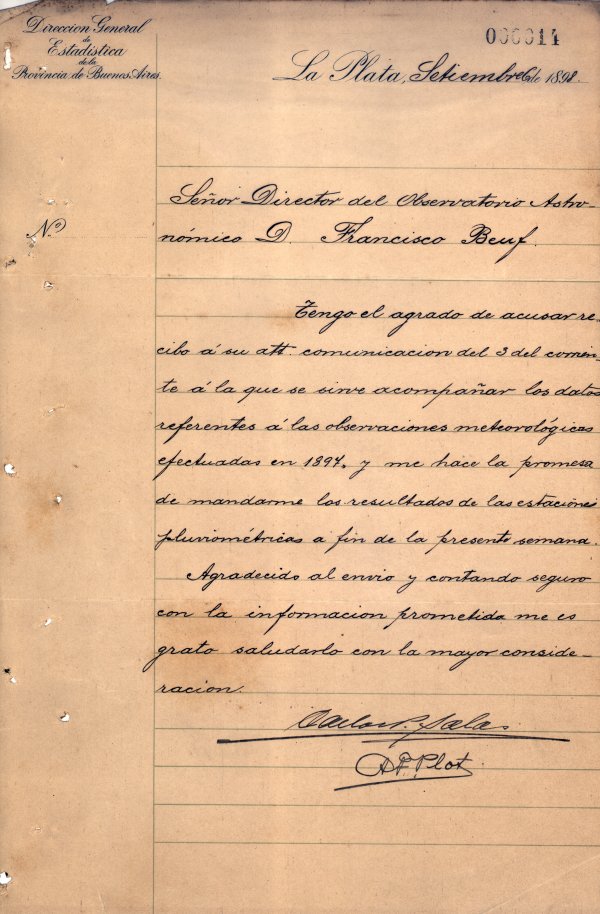 Direccion General
de
Estadistica
de la
Provincia de Buenos Aires.
000014
La Plata, Setiembre 6 de 1898.
Nº
Señor Director del Observatorio Astro-
nómico D. Francisco Beuf.
Tengo el agrado de acusar re-
cibo á su att. comunicacion del 3 del corrien-
te á la que se sirve acompañar los datos
referentes á las observaciones meteorológicas
efectuadas en 1897, y me hace la promesa
de mandarme los resultados de las estaciones
pluviométricas a fin de la presente semana.
Agradecido al envio y contando seguro
con la informacion prometida me es
grato saludarlo con la mayor conside-
racion.
Carlos P. Salas
A. F. Plot